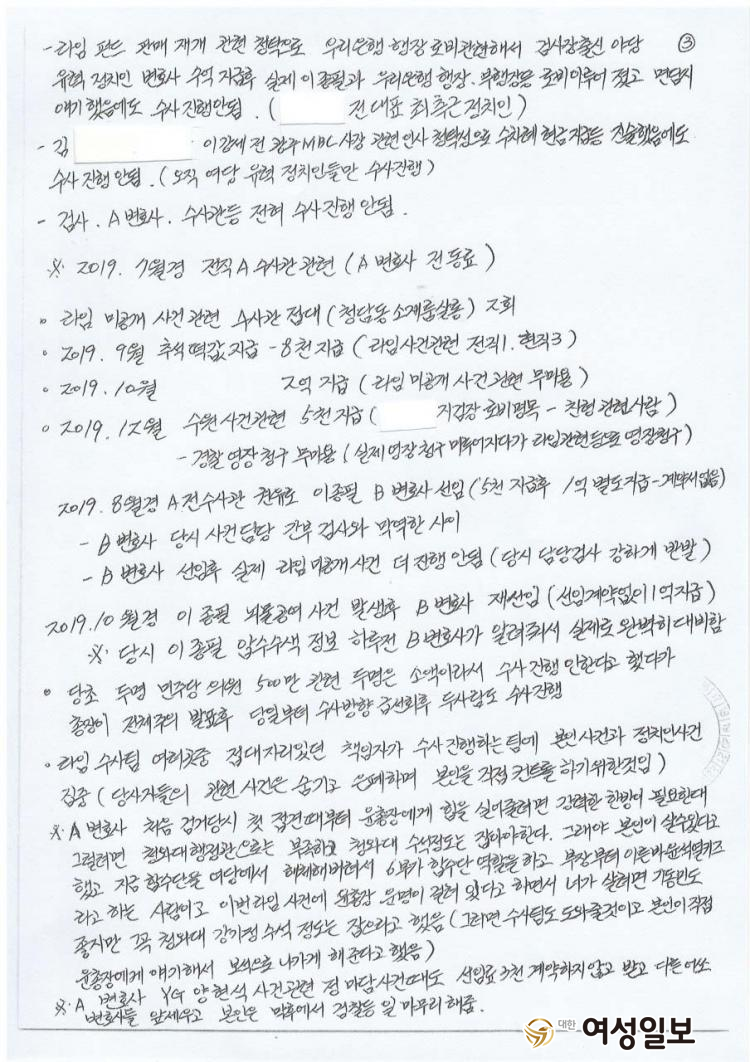 - 라임 펀드 판매 재개 관련 청탁으로 우리은행 행장 로비관련해서 검사장출신 야당 ③
유력 정치인 변호사 수억 지급후 실제 이종필과 우리은행 행장·부행장등 로비이루어 졌고 면담시
얘기 했음에도 수사 진행안됨. ( 전 대표 최측근 정치인 )
- 김 이강세 전 광주MBC 사장 관련 인사 청탁성으로 수차례 현금지급등 진술했음에도
수사 진행 안됨. ( 오직 여당 유력 정치인들만 수사진행 )
- 검사. A변호사. 수사관등 전혀 수사진행 안됨.
※ 2019. 7월경 전직 A수사관 관련 ( A 변호사 전동료 )
◦ 라임 미공개 사건 관련 수사관 접대 ( 청담동 소재룸살롱 ) 2회
◦ 2019. 9월 추석 떡값 지급 - 8천 지급 ( 라임사건관련 전직1. 현직3 )
◦ 2019. 10월 2억 지급 ( 라임 미공개 사건 관련 무마용 )
◦ 2019. 12월 수원 사건관련 5천 지급 ( 지검장 로비명목 - 친형 관련사람 )
- 경찰 영장 청구 무마용 ( 실제 영장청구 미루어지다가 라임관련등으로 영장청구 )
2019. 8월경 A전수사관 권유로 이종필 B 변호사 선임 ( 5천 지급후 1억 별도지급 - 계약서없음 )
- B 변호사 당시 사건 담당 간부 검사와 막역한 사이
- B 변호사 선임후 실제 라임 미공개사건 더 진행 안됨 ( 당시 담당검사 강하게 반발 )
2019. 10월경 이종필 뇌물공여 사건 발생후 B 변호사 재선임 ( 선임계약없이 1억지급 )
※ 당시 이종필 압수수색 정보 하루전 B변호사가 알려줘서 실제로 완벽히 대비함
◦ 당초 두명 민주당 의원 500만 관련 두명은 소액이라서 수사진행 안한다고 했다가
총장이 전체주의 발표후 당일부터 수사방향 급선회후 두사람도 수사진행
◦ 라임 수사팀 여러곳중 접대 자리있던 책임자가 수사진행하는 팀에 본인사건과 정치인사건
집중 ( 당사자들의 관련 사건은 숨기고 은폐하며 본인을 직접 컨트롤 하기위한것임 )
※ A 변호사 처음 검거당시 첫 접견때부터 윤총장에게 힘을 실어줄려면 강력한 한방이 필요한대
그럴려면 청와대행정관으로는 부족하고 청와대 수석정도는 잡아야한다. 그래야 본인이 살수있다고
했고 지금 합수단을 여당에서 해체해버려서 6부가 합수단 역할을 하고 부장부터 이른바 윤석열키즈
라고 하는 사람이고 이번라임 사건에 윤총장 운명이 걸려 있다고 하면서 너가 살려면 기동민도
좋지만 꼭 청와대 강기정 수석 정도는 잡으라고 했음 ( 그러면 수사팀도 도와줄것이고 본인이 직접
윤총장에게 얘기해서 보석으로 나가게 해준다고 했음 )
※ A 변호사 YG 양현석 사건관련 정 마담사건때도 선임료 3천 계약하지 않고 받고 다른 어쏘
변호사들 앞세우고 본인은 막후에서 검찰등 일 마무리 해줌.
대한 여성일보